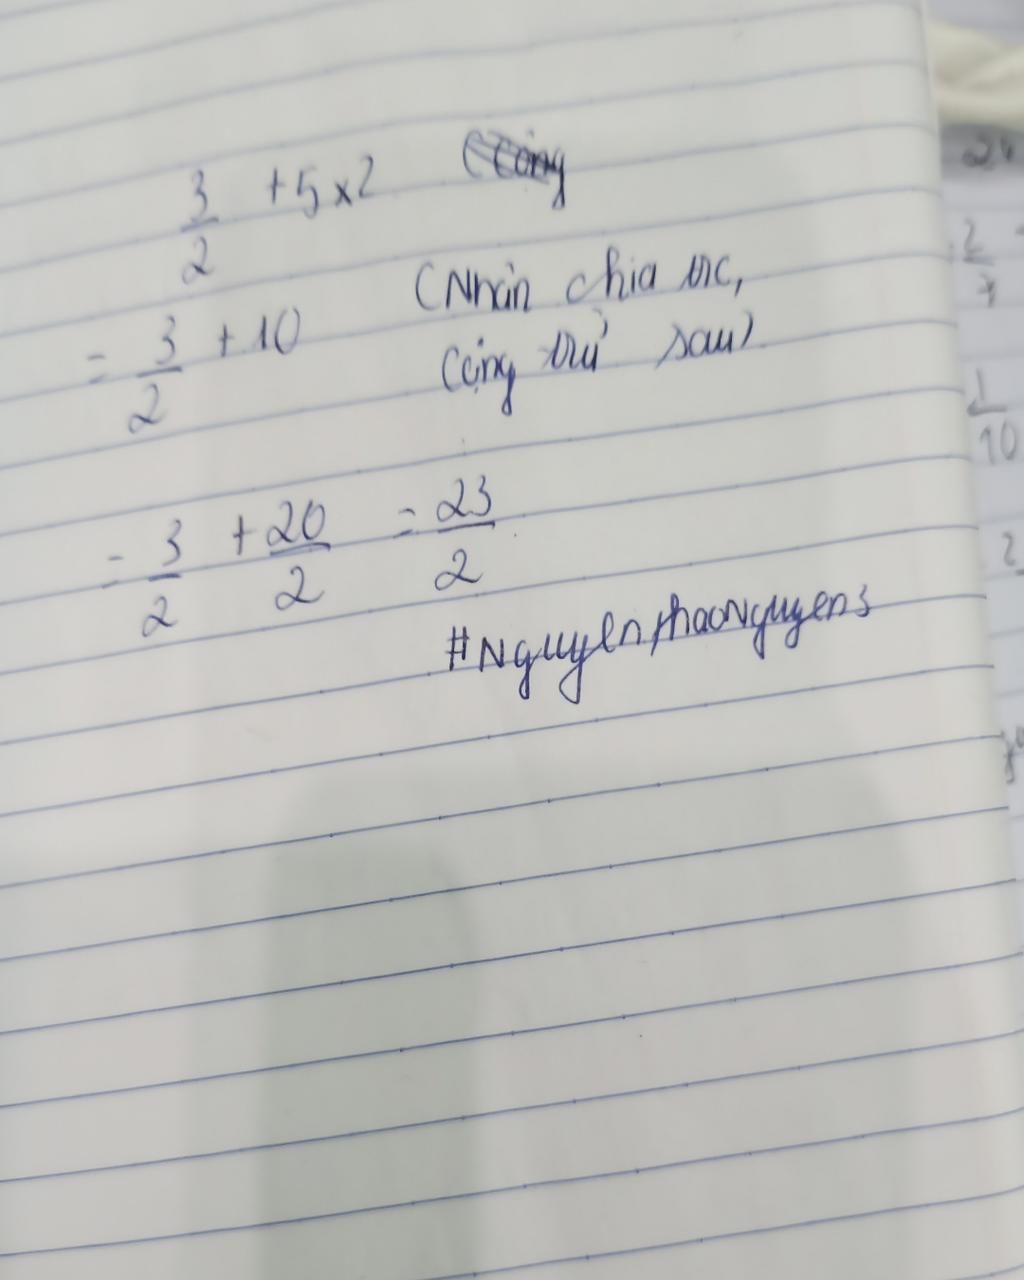 3/2 + 5 x 2 (Cộng
= 3/2 + 10 (Nhân chia trc,
cộng trừ sau)
= 3/2 + 20/2 = 23/2
#NguyenthaoNguyen3
24
2/7
1/10
2